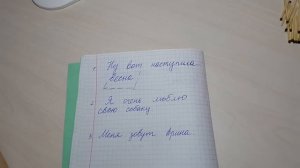 1. Ну вот наступила
весна!
2. Я очень люблю
свою собаку
3. Меня зовут Арина